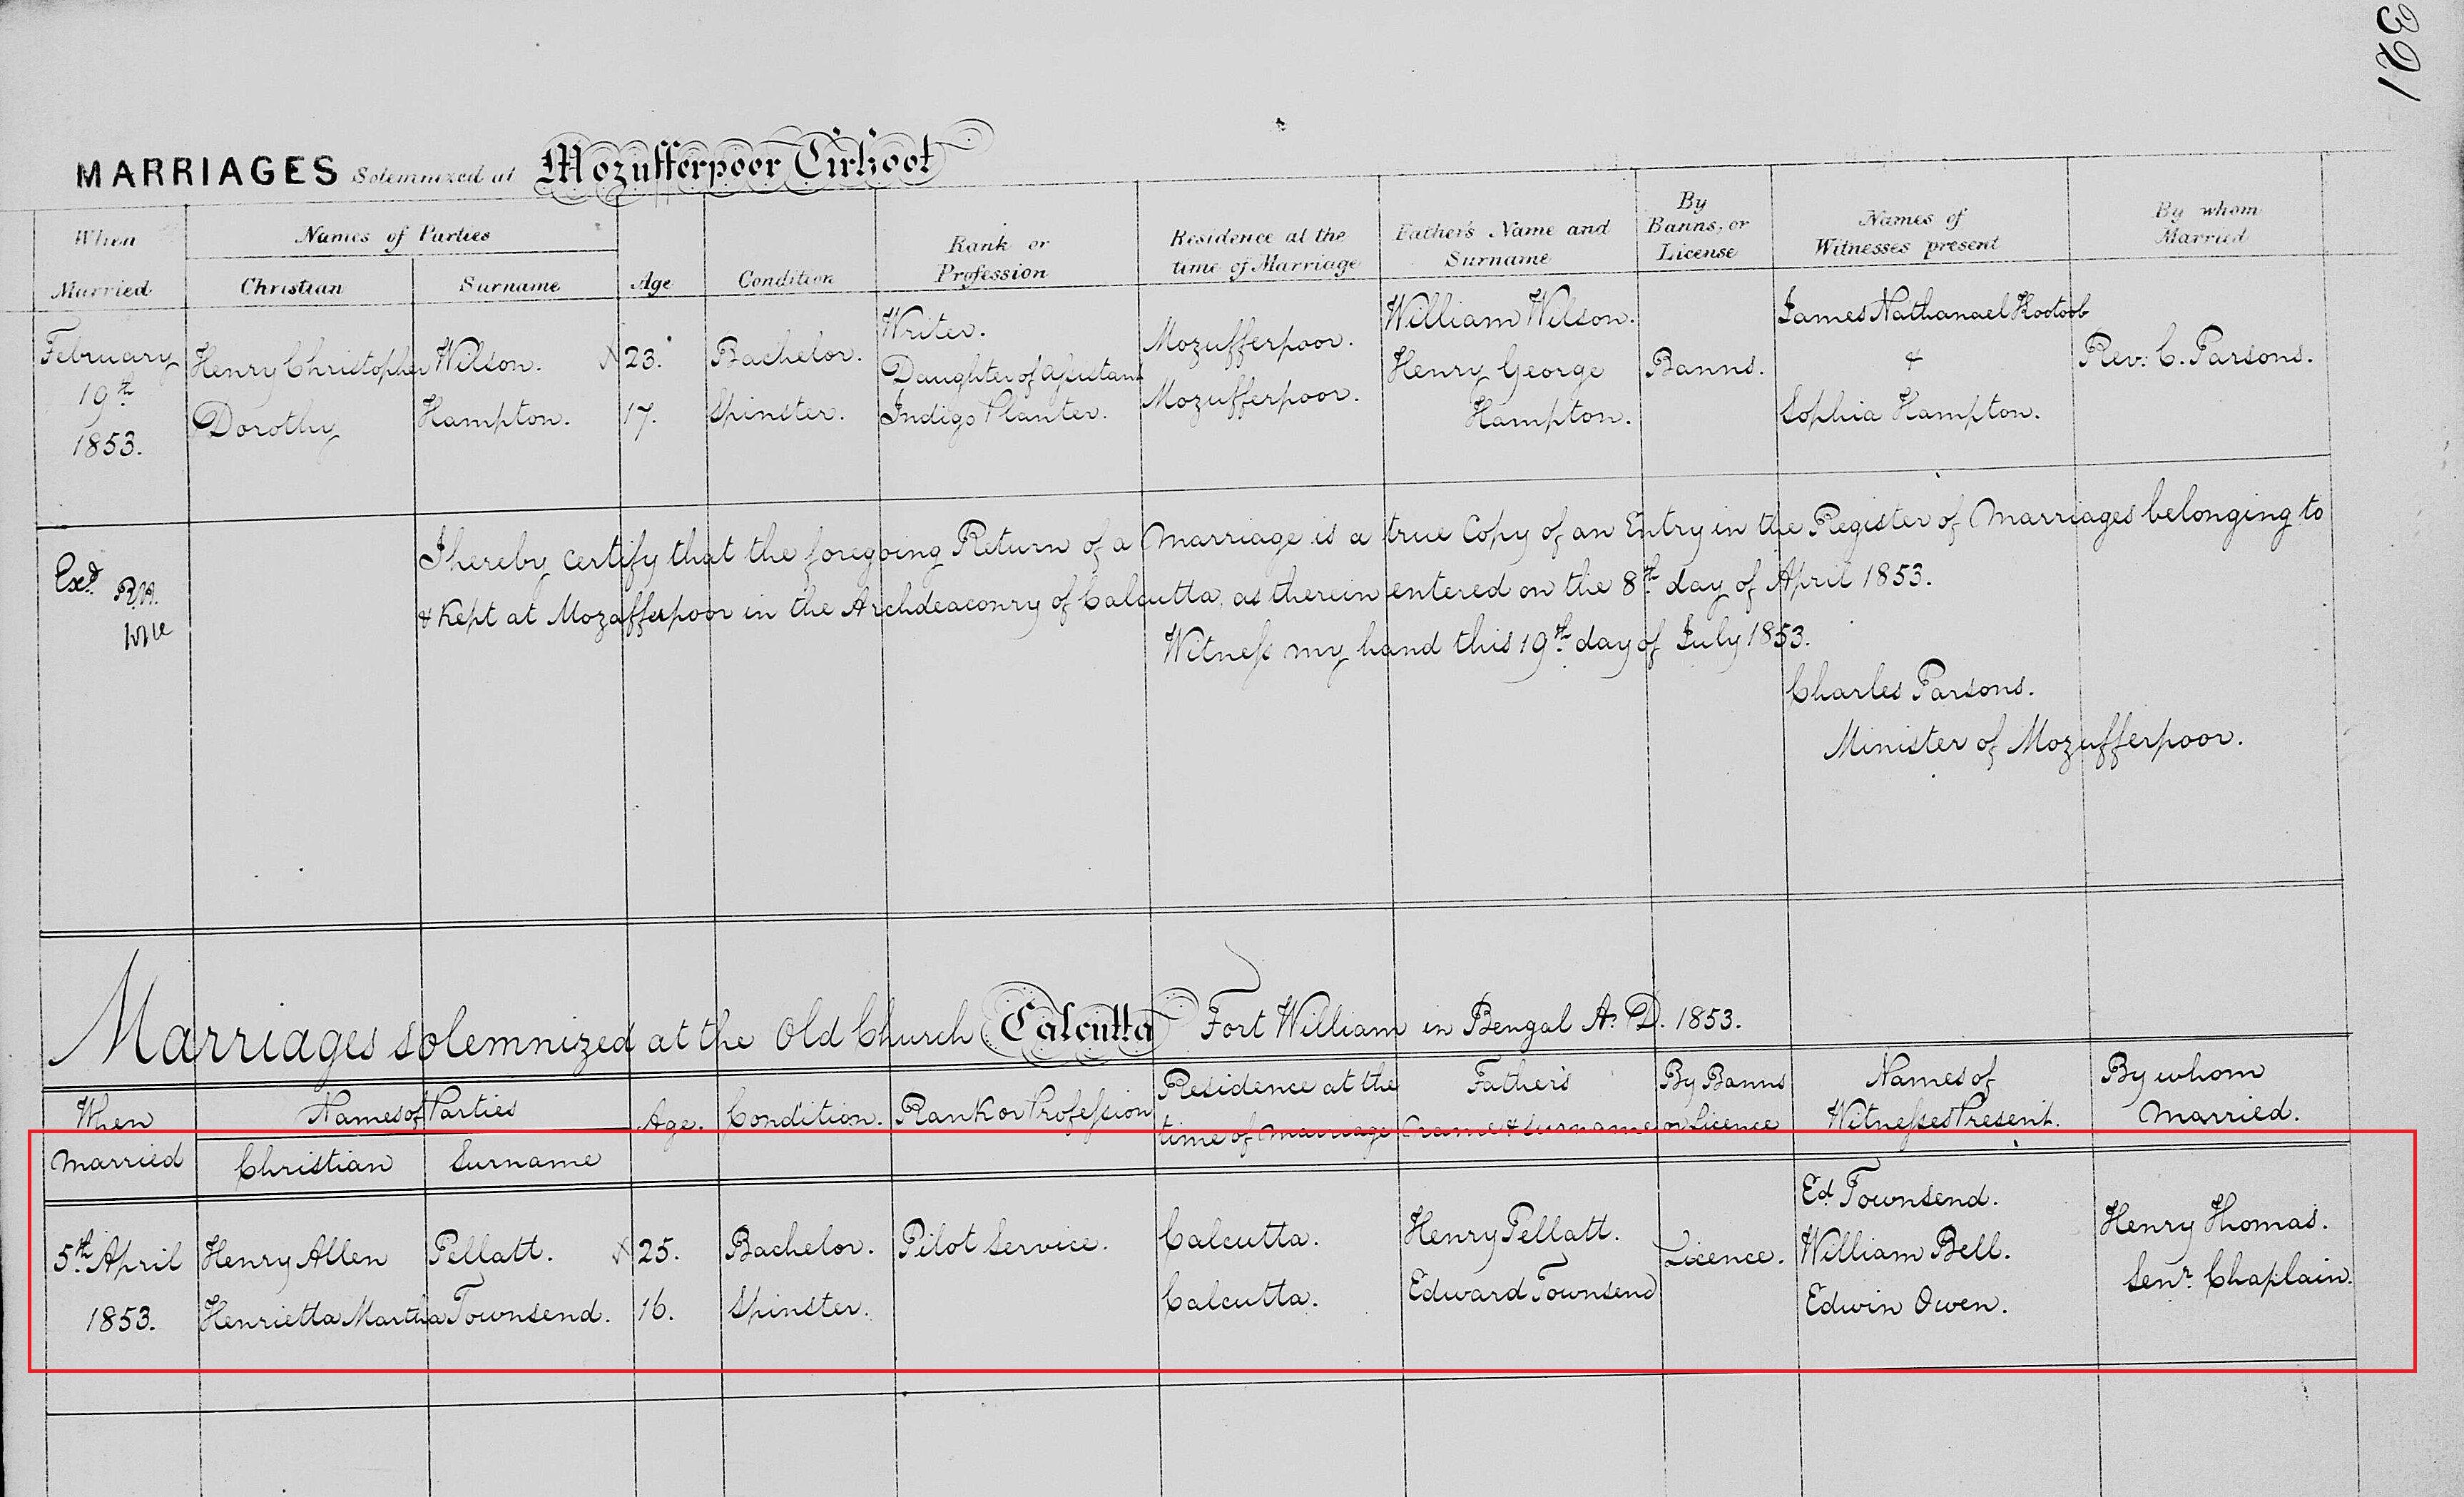 321
MARRIAGES Solemnized at Mozufferpoor Tirhoot
When Married
Names of Parties
Christian
Surname
Age
Condition
Rank or Profession
Residence at the time of Marriage
Father's Name and Surname
By Banns, or License
Names of Witnesses present
By whom Married
February 19th 1853.
Henry Christopher Wilson. 23. Bachelor. Writer. Mozufferpoor. William Wilson.
Dorothy Hampton. 17. Spinster. Daughter of Assistant Indigo Planter. Mozufferpoor. Henry George Hampton.
Banns.
James Nathanael
&
Sophia Hampton.
Rev: C. Parsons.
I hereby certify that the foregoing Return of a Marriage is a true Copy of an Entry in the Register of Marriages belonging to
& kept at Mozafferpoor in the Archdeaconry of Calcutta, as therein entered on the 8th day of April 1853.
Exd.
Witness my hand this 19th day of July 1853.
Charles Parsons.
Minister of Mozufferpoor.
Marriages solemnized at the Old Church Calcutta Fort William in Bengal A. D. 1853.
When Married
Names of Parties
Christian
Surname
Age.
Condition.
Rank or Profession
Residence at the time of Marriage
Father's Name & Surname
By Banns or Licence
Names of Witnesses Present.
By whom Married.
5th April 1853.
Henry Allen Pellatt. 25. Bachelor. Pilot Service. Calcutta. Henry Pellatt.
Henrietta Martha Townsend. 16. Spinster. Calcutta. Edward Townsend
Licence.
Ed Townsend.
William Bell.
Edwin Owen.
Henry Thomas.
Senr. Chaplain.